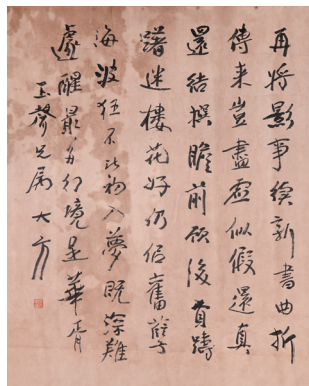 再将影事续新书曲折
传来岂尽虚似假还真
还结撰瞻前顾后费踌
躇迷楼花好仍依旧孽
海波狂不比初入梦既深难
遽醒最多幻境是华胥
玉声兄属大方